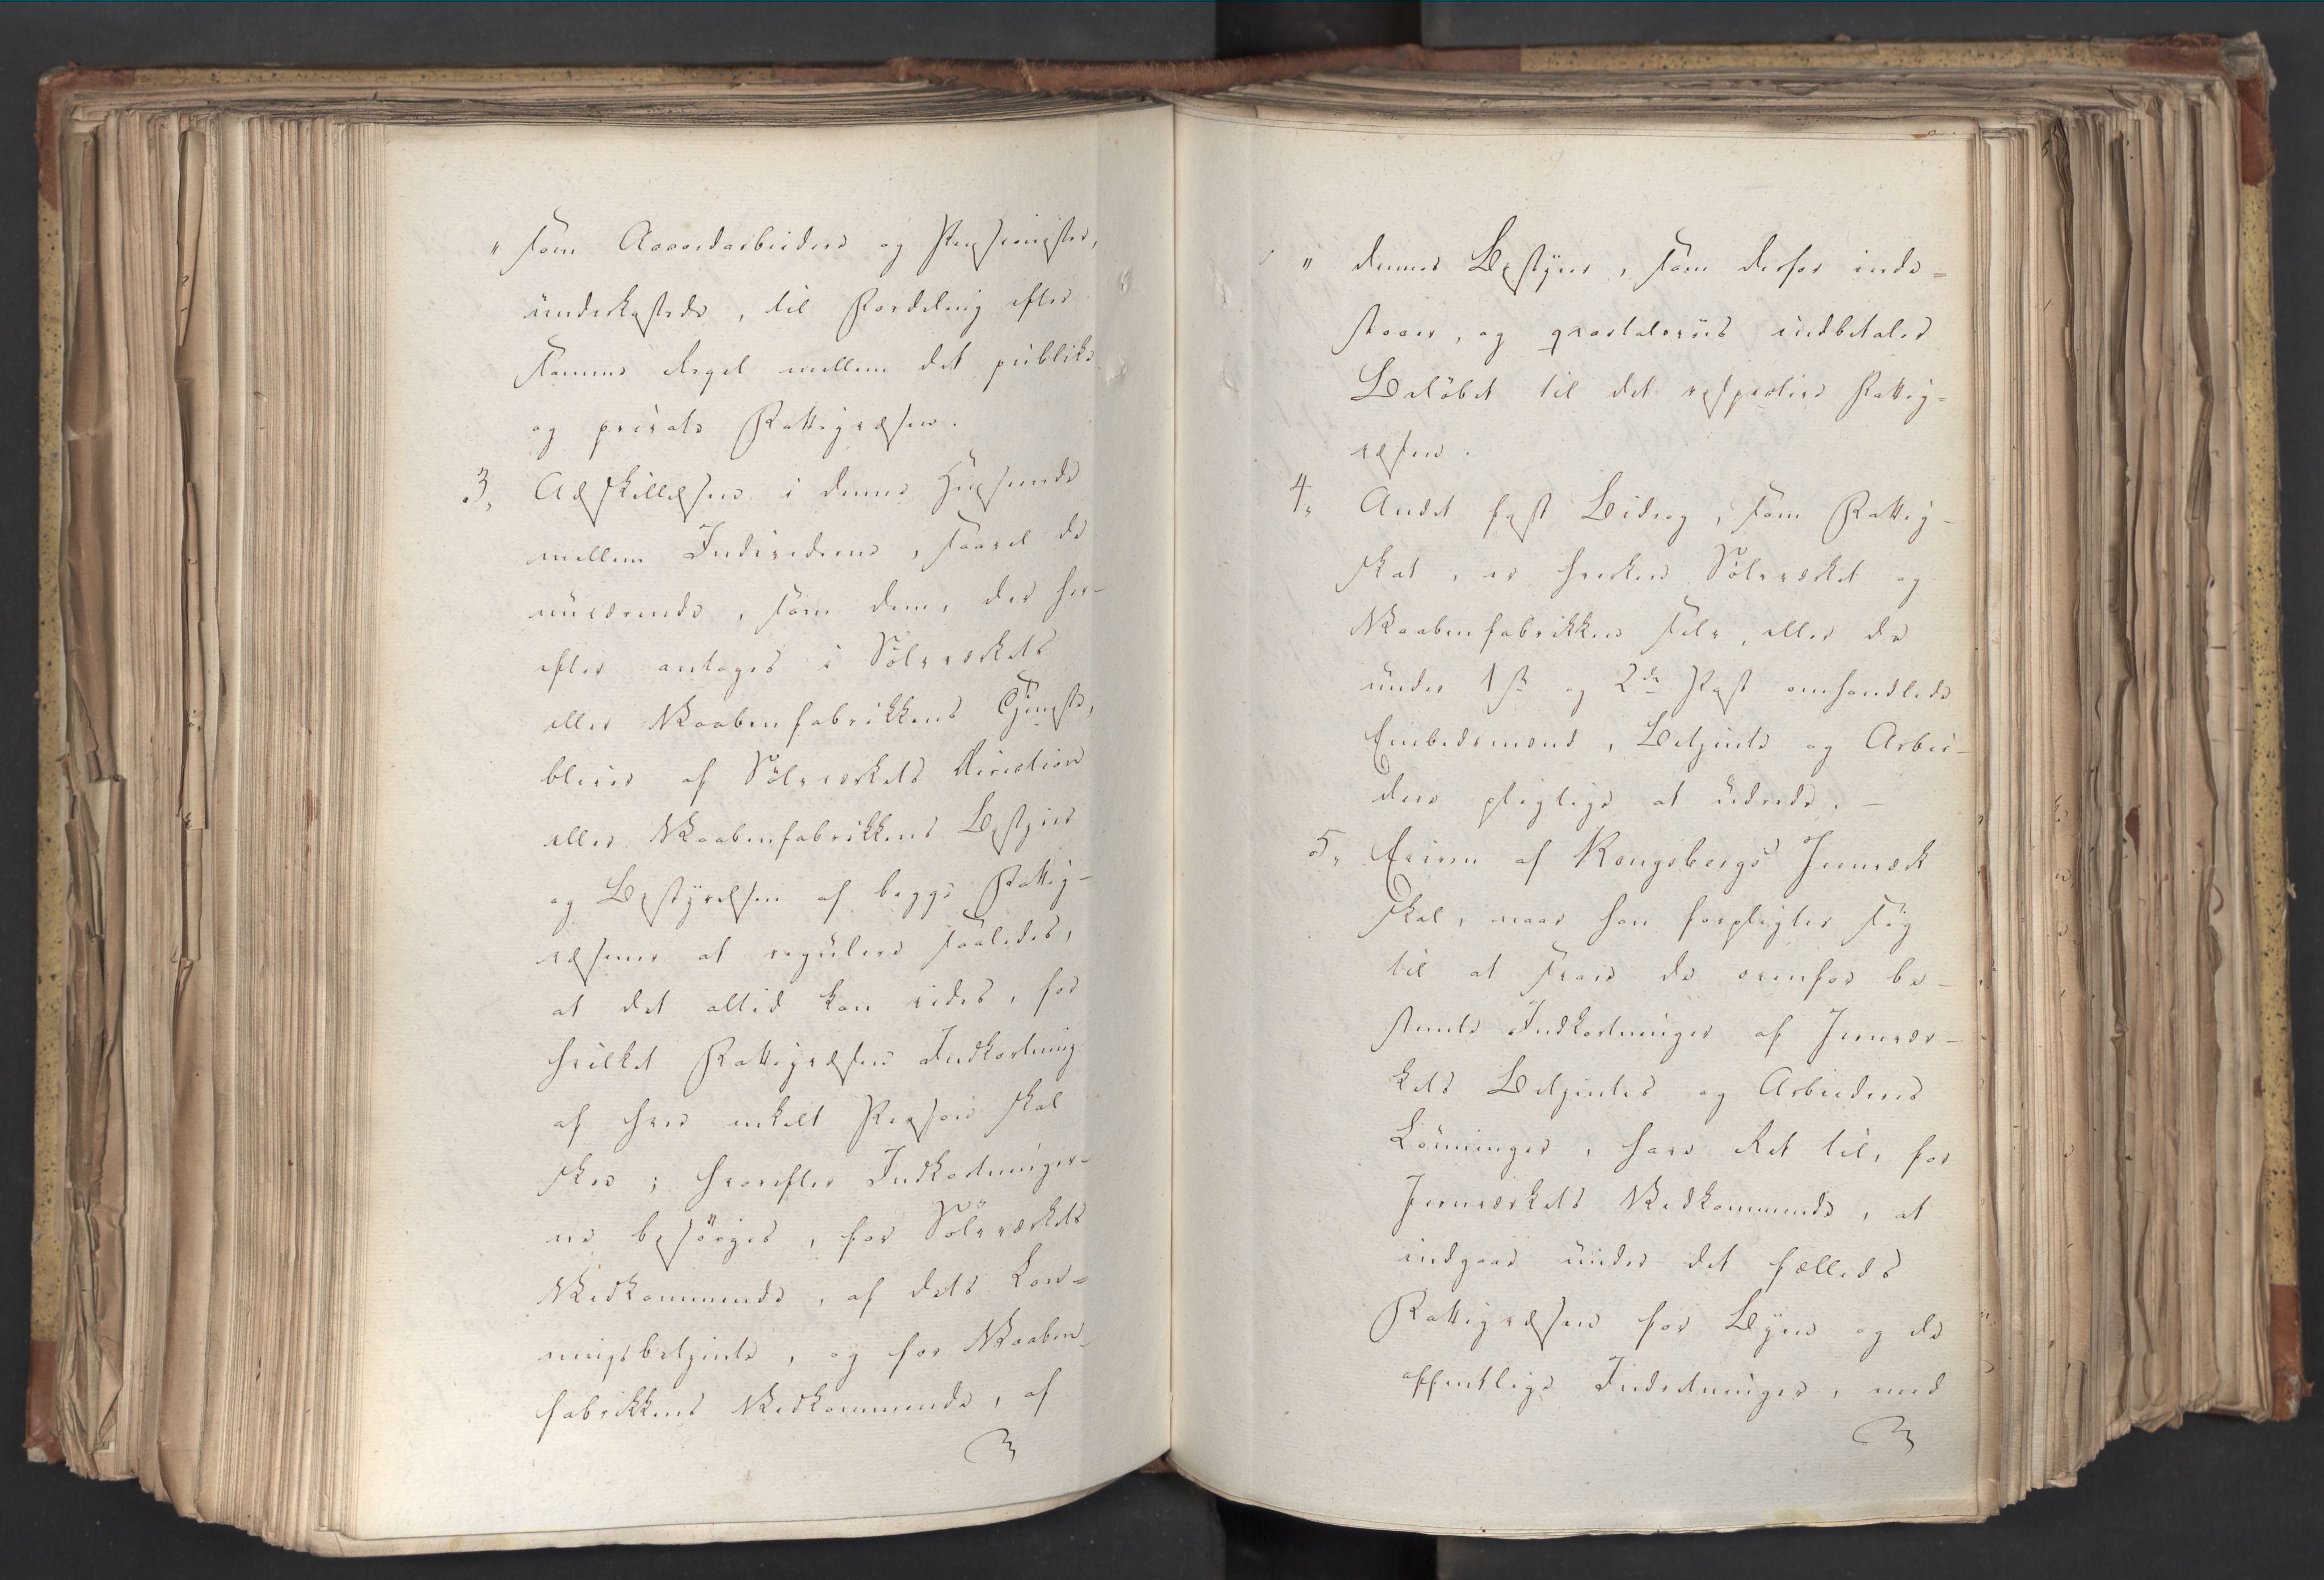 " som Accordarbeidere og Pensionister,
underkastede, til Fordeling efter
samme Regel mellem det publike
og private Fattigvæsen.
3, Adskillelsen i denne Henseende
mellem Individerne, saavel de
nuværende, som dem, der her-
efter antages i Sölvværkets
eller Vaabenfabrikkens Tjeneste,
bliver af Sölvværkets Direction
eller Vaabenfabrikkens Bestyrer
og Bestyrelsen af begge Fattig-
væsener at regulere saaledes,
at det altid kan vides, for
hvilket Fattigvæsen Indkortning
af hver enkelt Person skal
skee; hvorefter Indkortninger-
ne besörges, for Sölvværkets
Vedkommende, af dets Løn-
ningsbetjente, og for Vaaben-
fabrikkens Vedkommende, af
" dennes Bestyrer, som derfor inde=
staaer, og qvartaliter indbetaler
Belöbet til det respective Fattig=
væsen.
4, Andet fast Bidrag, som Fattig-
skat, er hverken Sölvværket og
Vaabenfabrikken selv, eller de
under 1ste og 2den Post omhandlede
Embedsmænd, Betjente og Arbei-
dere pligtige at udrede. -
5, Eieren af Kongsbergs Jernværk
skal, naar han forpligter sig
til at svare de ovenfor be-
stemte Indkortninger af Jernvær-
kets Betjentes og Arbeideres
Lönninger, have Ret til, for
Jernværkets Vedkommende, at
indgaae under det fælleds
Fattigvæsen for Byen og de
offentlige Indretninger, med